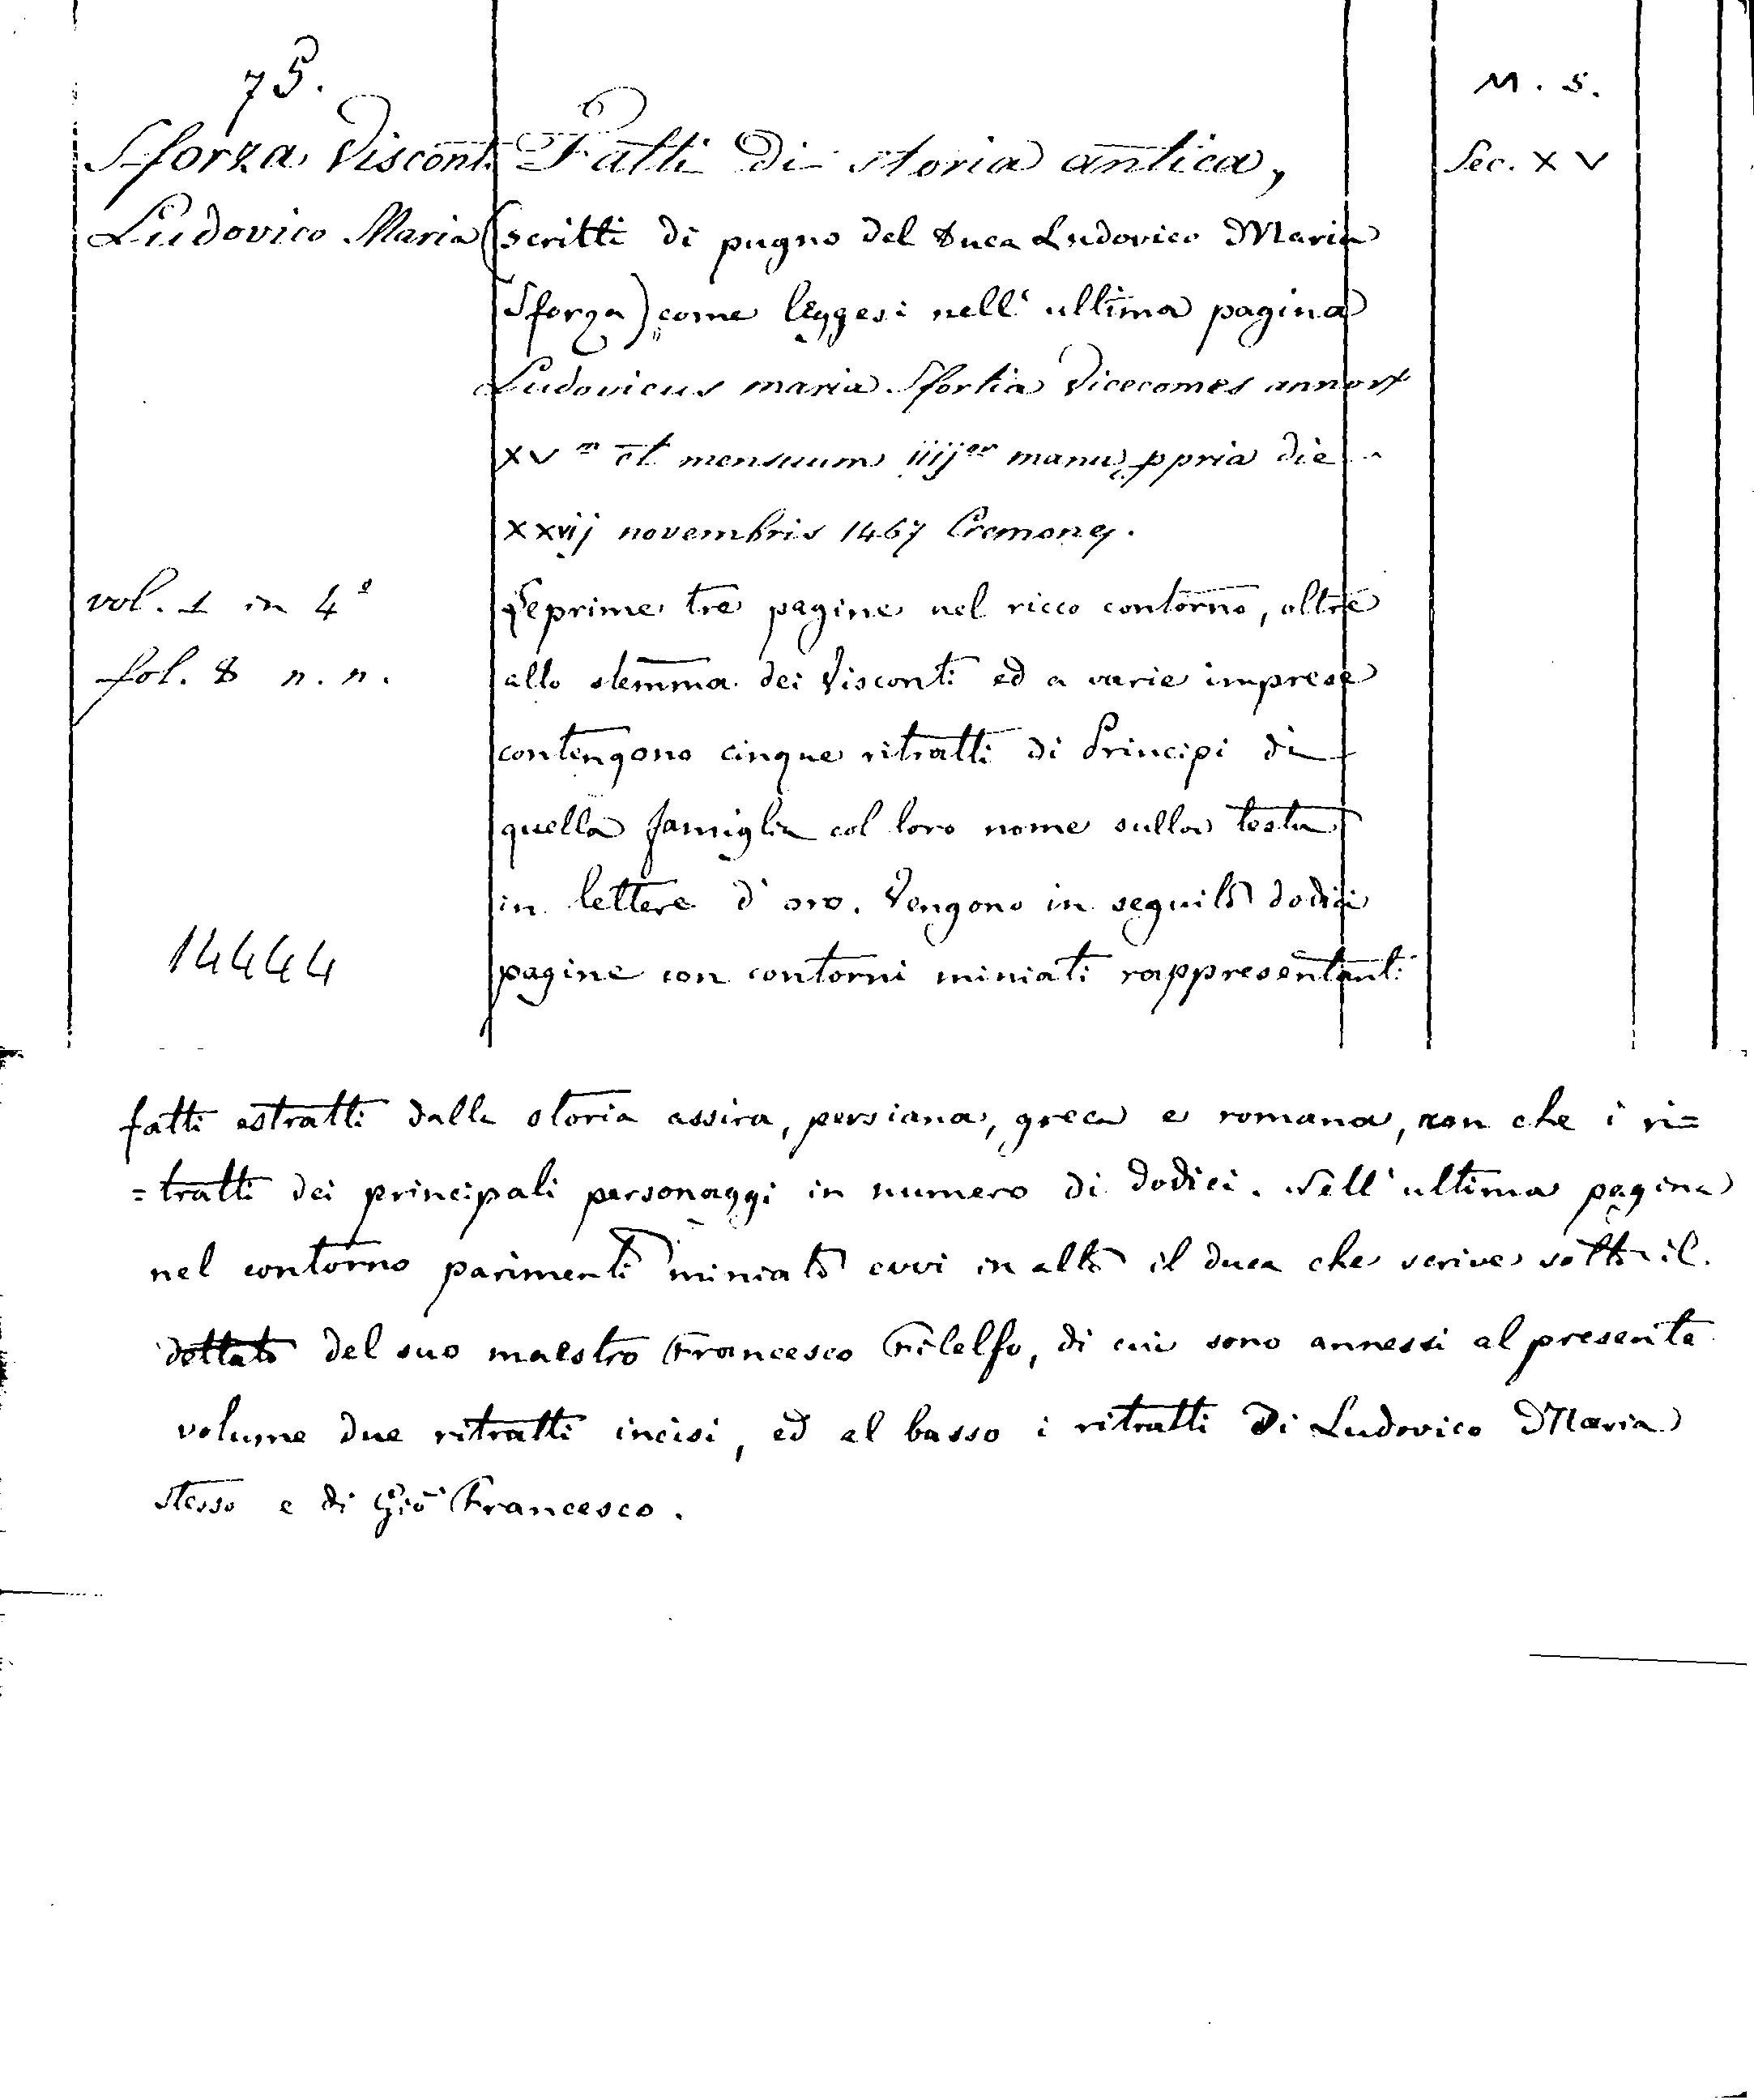 75.
M. S.
Sforza Visconti
Fatti di storia antica,
Sec. XV
Ludovico Maria
(scritti di pugno del Duca Ludovico Maria
Sforza) come leggesi nell' ultima pagina
Ludovicus maria Sfortia Vicecomes annorꝝ
XV m et mensuum iiij or manu ꝓpria die
xxvij novembris 1467 Cremonę.
vol. 1 in 4º
Le prime tre pagine nel ricco contorno, oltre
fol. 8 n. n.
allo stemma dei Visconti ed a varie imprese
contengono cinque ritratti di Principi di
quella famiglia col loro nome sulla testa
in lettere d' oro. Vengono in seguito dodici
14444
pagine con contorni miniati rappresentanti
fatti estratti dalla storia assira, persiana, greca e romana, non che i ri=
=tratti dei principali personaggi in numero di dodici. Nell' ultima pagina
nel contorno parimenti miniato evvi in alto il duca che scrive sotto il
dettato del suo maestro Francesco Filelfo, di cui sono annessi al presente
volume due ritratti incisi, ed al basso i ritratti di Ludovico Maria
stesso e di Gio Francesco.